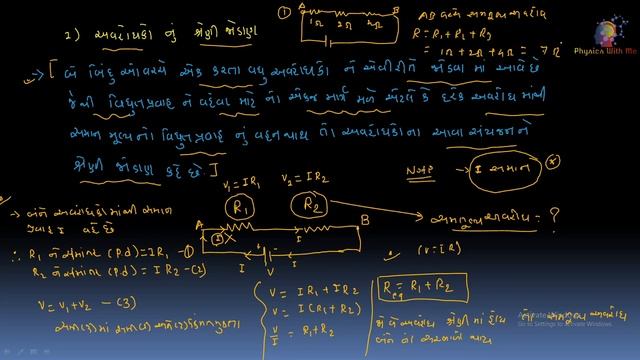 2) અવરોધકો નું શ્રેણી જોડાણ
1 A B
1Ω 2Ω 4Ω
AB વચ્ચે સમતુલ્ય અવરોધ
R = R1 + R2 + R3
= 1Ω + 2Ω + 4Ω = 7Ω
Physics With Me
→ [ બે બિંદુઓ વચ્ચે એક કરતા વધુ અવરોધકો ને એવી રીતે જોડવા માં આવે છે
જેથી વિદ્યુતપ્રવાહ ને વહેવા માટે નો એકજ માર્ગ મળે એટલે કે દરેક અવરોધ માંથી
સમાન મૂલ્ય નો વિદ્યુતપ્રવાહ નું વહન થાય તો અવરોધકોના આવા સંયોજનને
શ્રેણી જોડાણ કહે છે. ]
નોંધ → I સમાન
V1 = IR1 V2 = IR2
R1 R2
A B
I I I V
→ બંને અવરોધકોમાંથી સમાન
પ્રવાહ I વહે છે
∴ R1 ને સમાંતર (P.d) = IR1 - 1
R2 ને સમાંતર (P.d) = IR2 - (2)
V = V1 + V2 - (3)
સમતુલ્ય અવરોધ = ?
(V = IR)
V = IR1 + IR2
V = I(R1 + R2)
V/I = R1 + R2
Req = R1 + R2
જો બે અવરોધ શ્રેણી માં હોય તો સમતુલ્ય અવરોધ
બંને ના સરવાળો થાય
Activate Windows
Go to Settings to activate Windows.